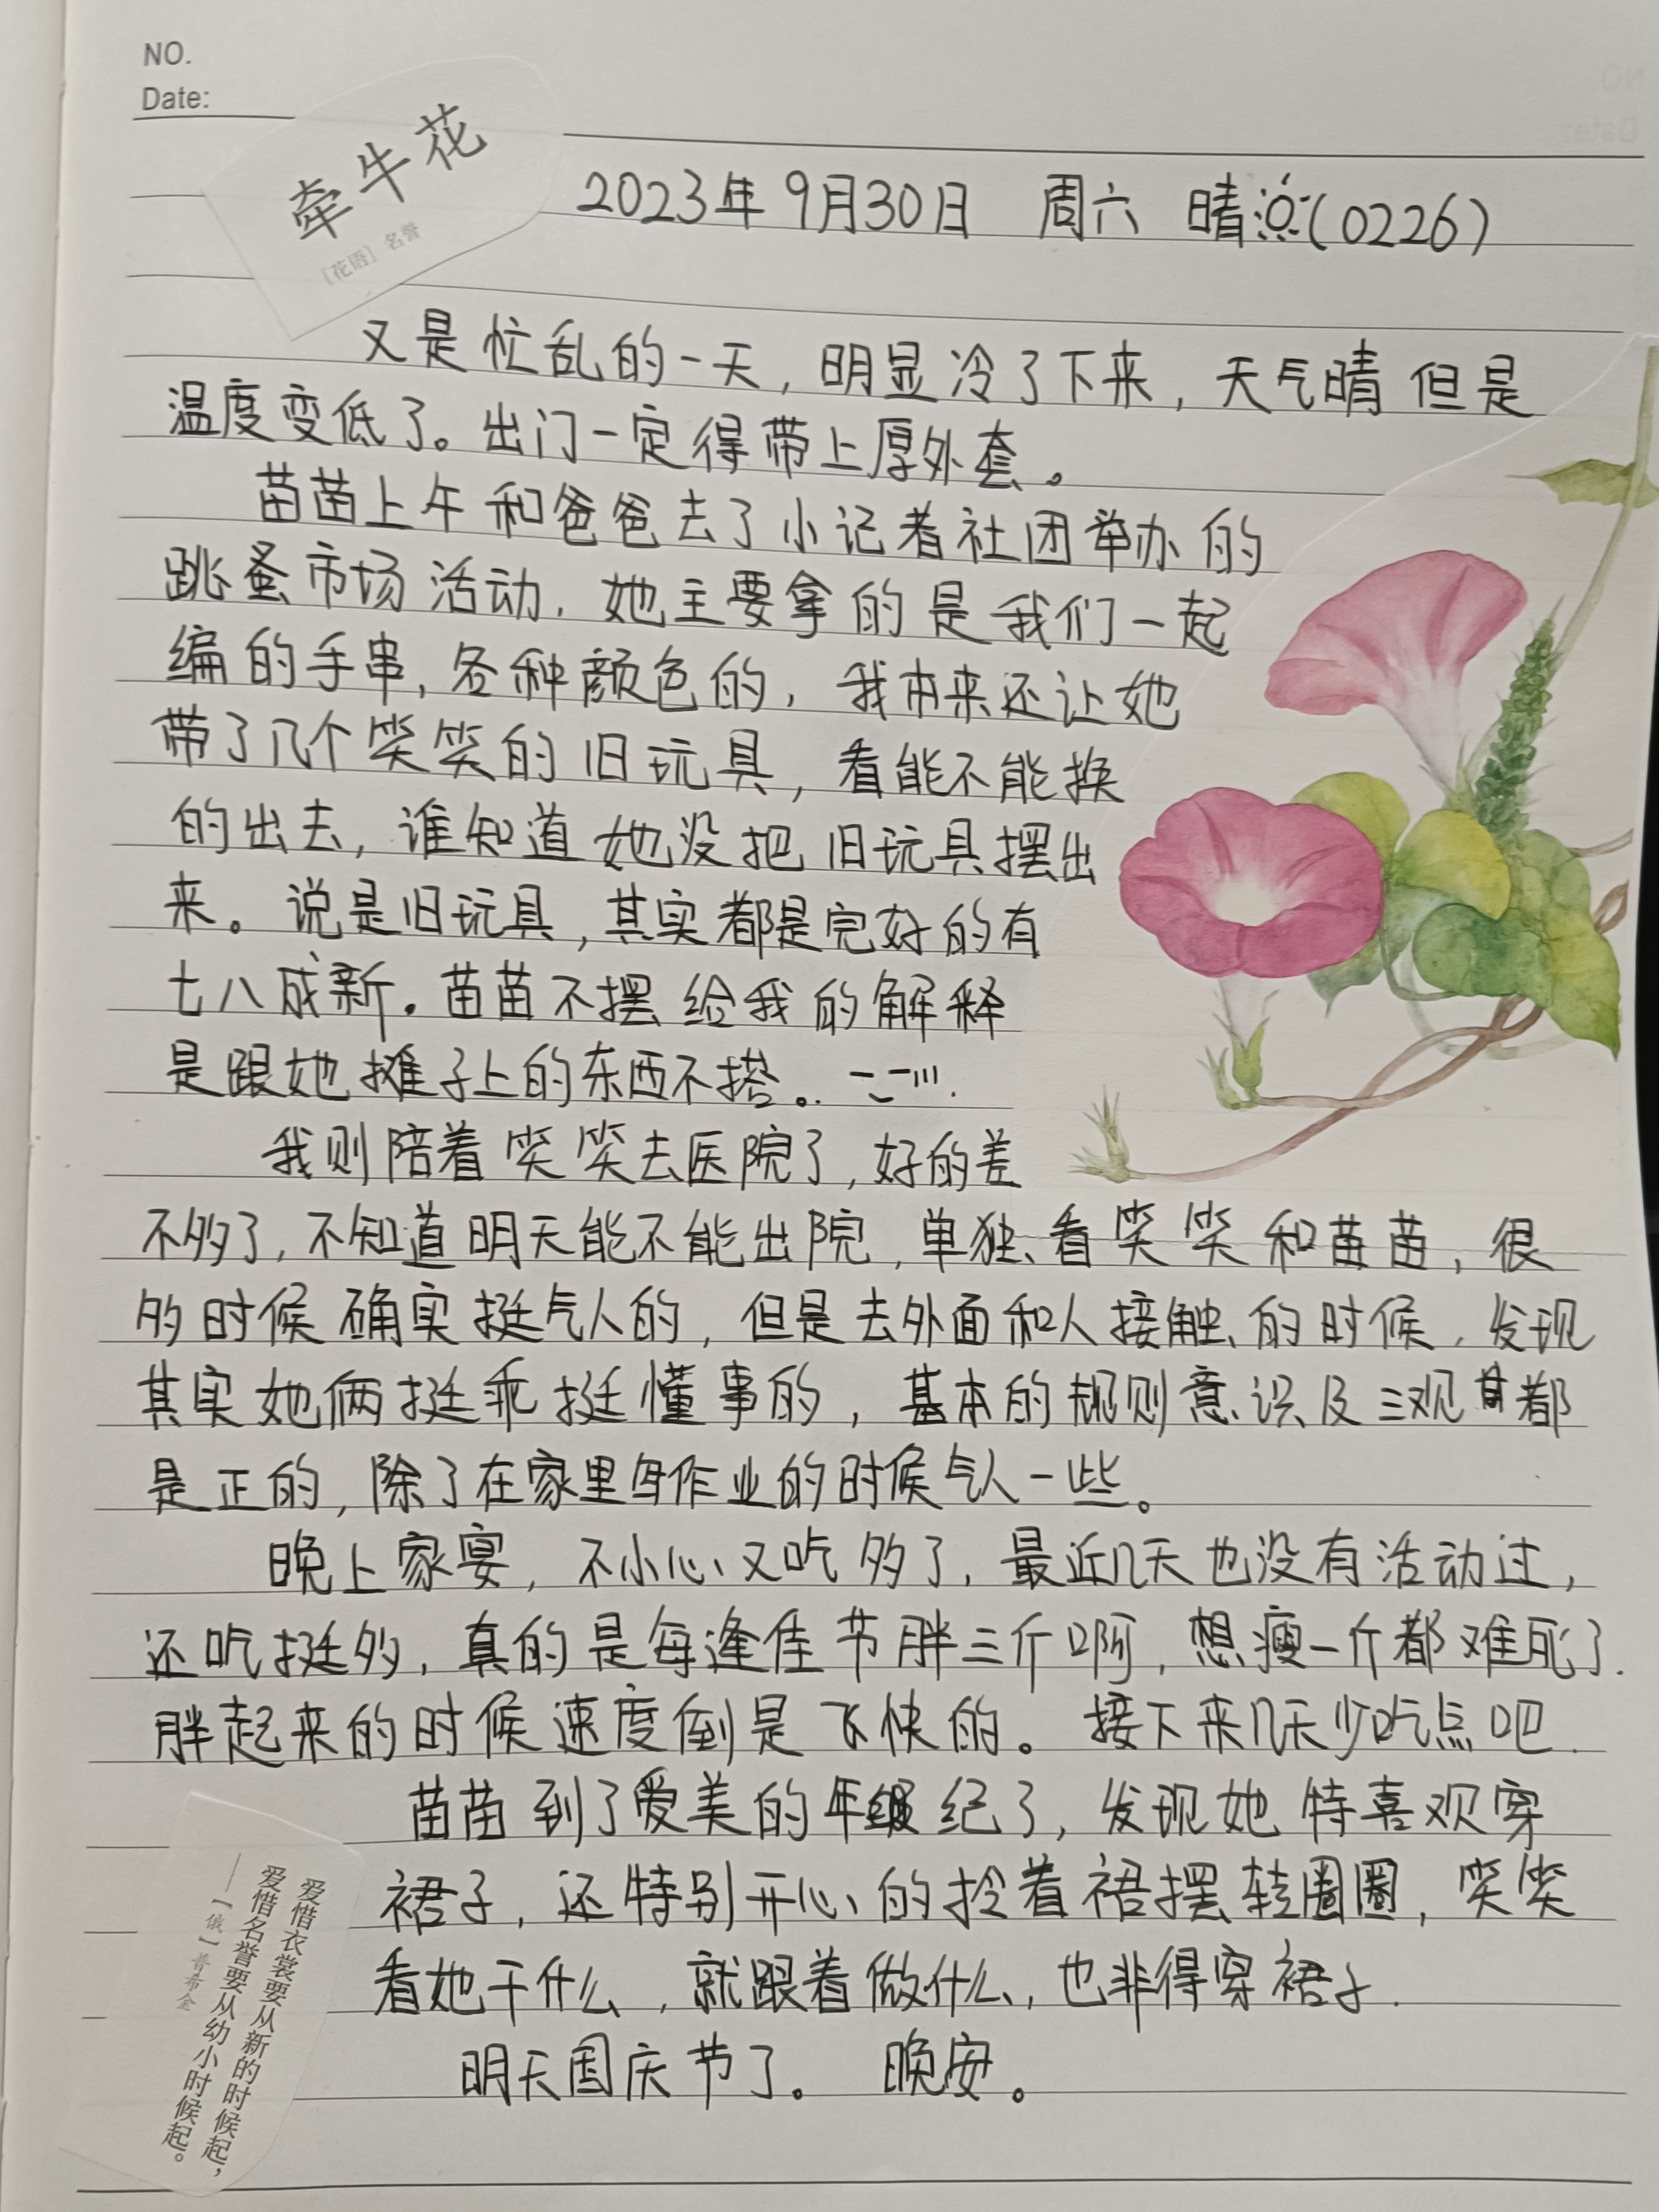 NO.
Date:
牵牛花
[花语] 名誉
2023年9月30日 周六 晴(0226)
又是忙乱的一天，明显冷了下来，天气晴但是
温度变低了。出门一定得带上厚外套。
苗苗上午和爸爸去了小记者社团举办的
跳蚤市场活动，她主要拿的是我们一起
编的手串，各种颜色的，我本来还让她
带了几个笑笑的旧玩具，看能不能换
的出去，谁知道她没把旧玩具摆出
来。说是旧玩具，其实都是完好的有
七八成新。苗苗不摆给我的解释
是跟她摊子上的东西不搭。
我则陪着笑笑去医院了，好的差
不多了，不知道明天能不能出院，单独看笑笑和苗苗，很
多时候确实挺气人的，但是去外面和人接触的时候，发现
其实她俩挺乖挺懂事的，基本的规则意识及三观都
是正的，除了在家里写作业的时候气人一些。
晚上家宴，不小心又吃多了，最近几天也没有活动过，
还吃挺多，真的是每逢佳节胖三斤啊，想瘦一斤都难死了.
胖起来的时候速度倒是飞快的。接下来几天少吃点吧.
苗苗到了爱美的年纪了，发现她特喜欢穿
裙子，还特别开心的拎着裙摆转圈圈，笑笑
看她干什么，就跟着做什么，也非得穿裙子.
明天国庆节了。 晚安。
爱惜衣裳要从新的时候起，
爱惜名誉要从幼小时候起。
——［俄］普希金